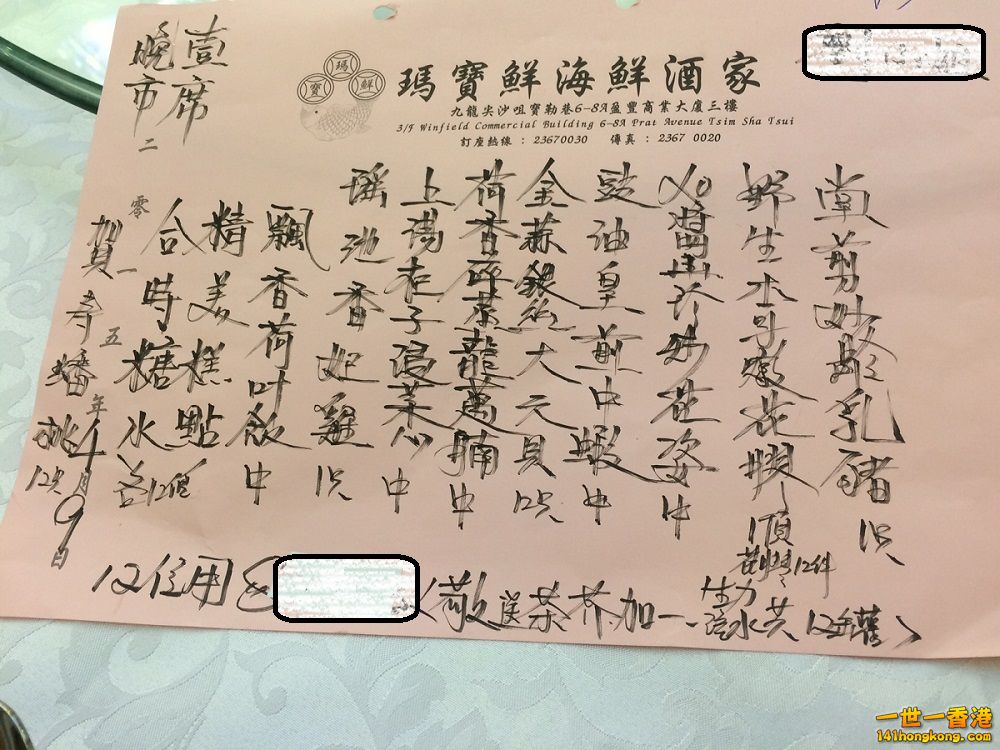 瑪 寶 鮮
瑪寶鮮海鮮酒家
九龍尖沙咀寶勒巷6-8A盈豐商業大廈三樓
3/F Winfield Commercial Building 6-8A Prat Avenue Tsim Sha Tsui
訂座熱線 : 23670030 傳真 : 2367 0020
壹席
晚市
堂剪妙齡乳豬1只
野生水母燉花膠
12件
XO醬山珍炒花姿中
豉油皇煎中蝦中
金蒜銀絲大元貝12只
荷香菜龍躉腩中
上湯杞子浸菜心中
瑤池香妃雞1只
飄香荷叶飯中
精美糕點
合時糖水各12個
賀壽蟠桃12只
二零一五年4月9日
12位用
(敬送茶芥加一、生力 水共12罐)
一世一香港
141hongkong.com